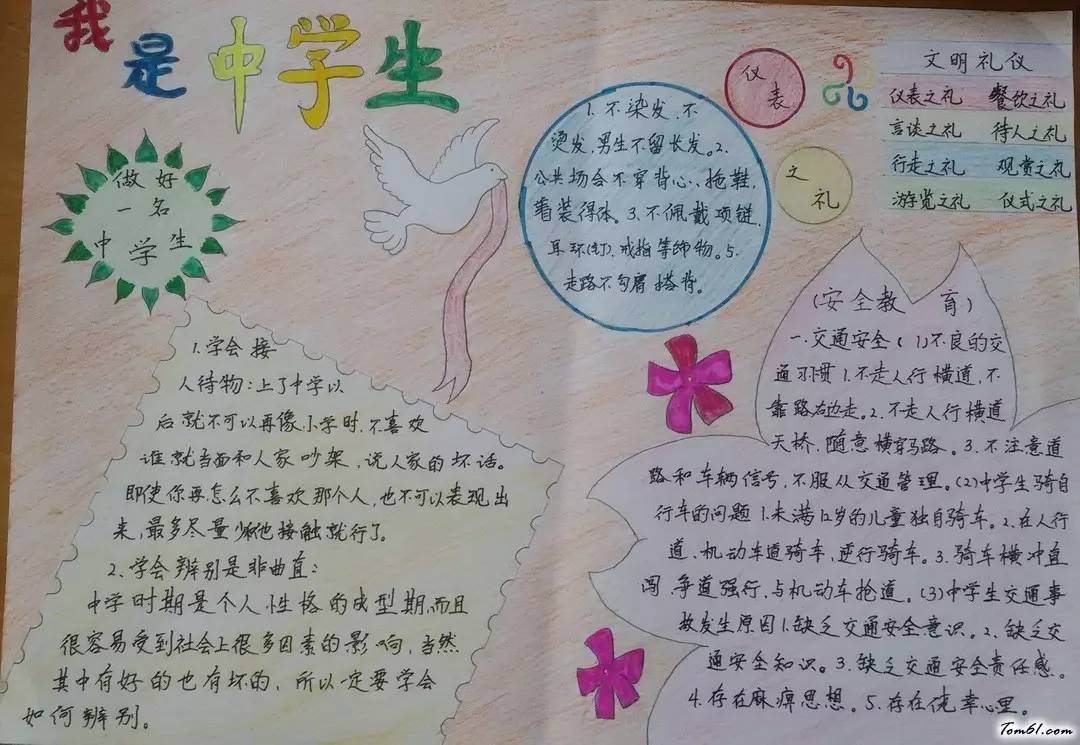 我是中学生
做好
一名
中学生
1.学会接
人待物:上了中学以
后就不可以再像小学时,不喜欢
谁就当面和人家吵架,说人家的坏话。
即使你再怎么不喜欢那个人,也不可以表现出
来,最多尽量少和他接触就行了。
2.学会辨别是非曲直:
中学时期是个人性格的成型期,而且
很容易受到社会上很多因素的影响,当然
其中有好的也有坏的,所以一定要学会
如何辨别。
1.不染发,不
烫发,男生不留长发。2.
公共场合不穿背心、拖鞋,
着装得体。3.不佩戴项链,
耳环(钉),戒指等饰物。5.
走路不勾肩搭背。
仪表
之礼
文明礼仪
仪表之礼 餐饮之礼
言谈之礼 待人之礼
行走之礼 观赏之礼
游览之礼 仪式之礼
(安全教育)
一.交通安全(1)不良的交
通习惯1.不走人行横道,不
靠路右边走。2.不走人行横道
天桥,随意横穿马路。3.不注意道
路和车辆信号,不服从交通管理。(2)中学生骑自
行车的问题1.未满12岁的儿童独自骑车。2.在人行
道、机动车道骑车,逆行骑车。3.骑车横冲直
闯,争道强行,与机动车抢道。(3)中学生交通事
故发生原因1.缺乏交通安全意识。2.缺乏交
通安全知识。3.缺乏交通安全责任感。
4.存在麻痹思想。5.存在侥幸心里。
Tom61.com